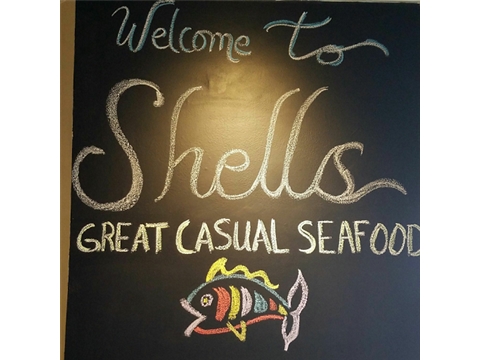 Welcome to
Shells
GREAT CASUAL SEAFOOD